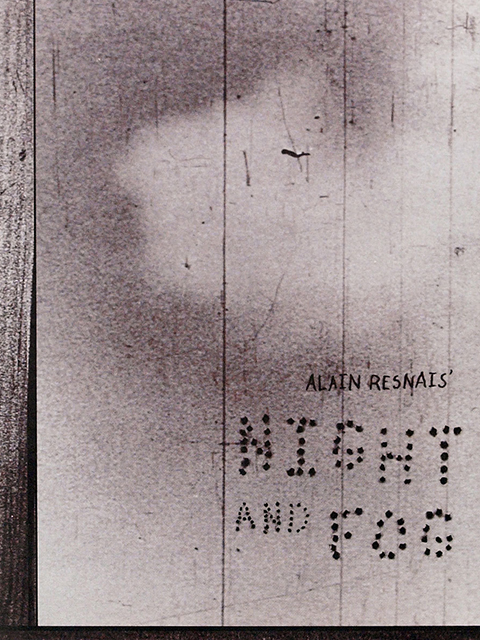 ALAIN RESNAIS'
NIGHT
AND FOG